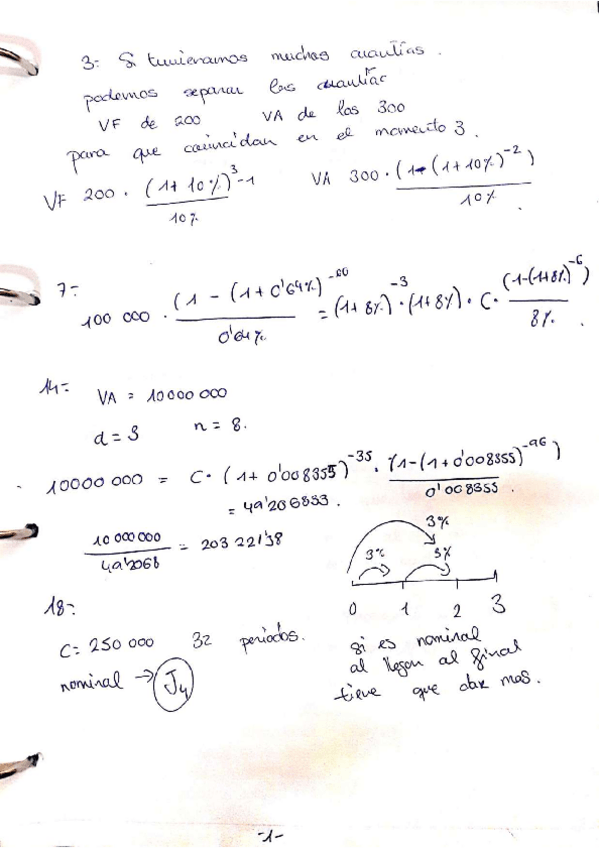 3- Si tuvieramos muchas cuantías.
podemos separar las cuantías
VF de 200 VA de los 300
para que coincidan en el momento 3.
VF 200 · ((1+10%)^3-1)/10% VA 300 · (1-(1+10%)^-2)/10%
7-
100 000 · (1-(1+0'64%)^-60)/0'64% = (1+8%)^-3 · (1+8%) · C · (1-(1+8%)^-6)/8%.
14-
VA = 10000000
d = 3 n = 8.
10000000 = C · (1+0'008355)^-35 · (1-(1+0'008355)^-96)/0'008355.
= 49'206853.
10000000/49'2068 = 203221'38
3%
3% 3%
0 1 2 3
18-
C = 250 000 32 periodos.
nominal → J4
si es nominal
al llegar al final
tiene que dar mas.
-1-